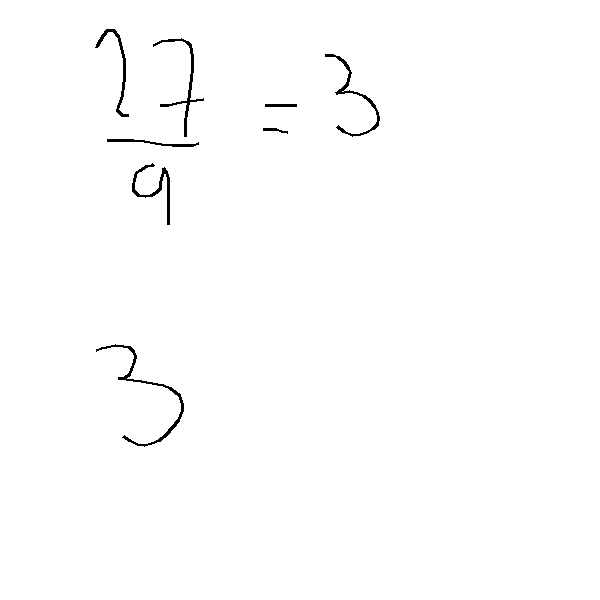 27/9 = 3
3